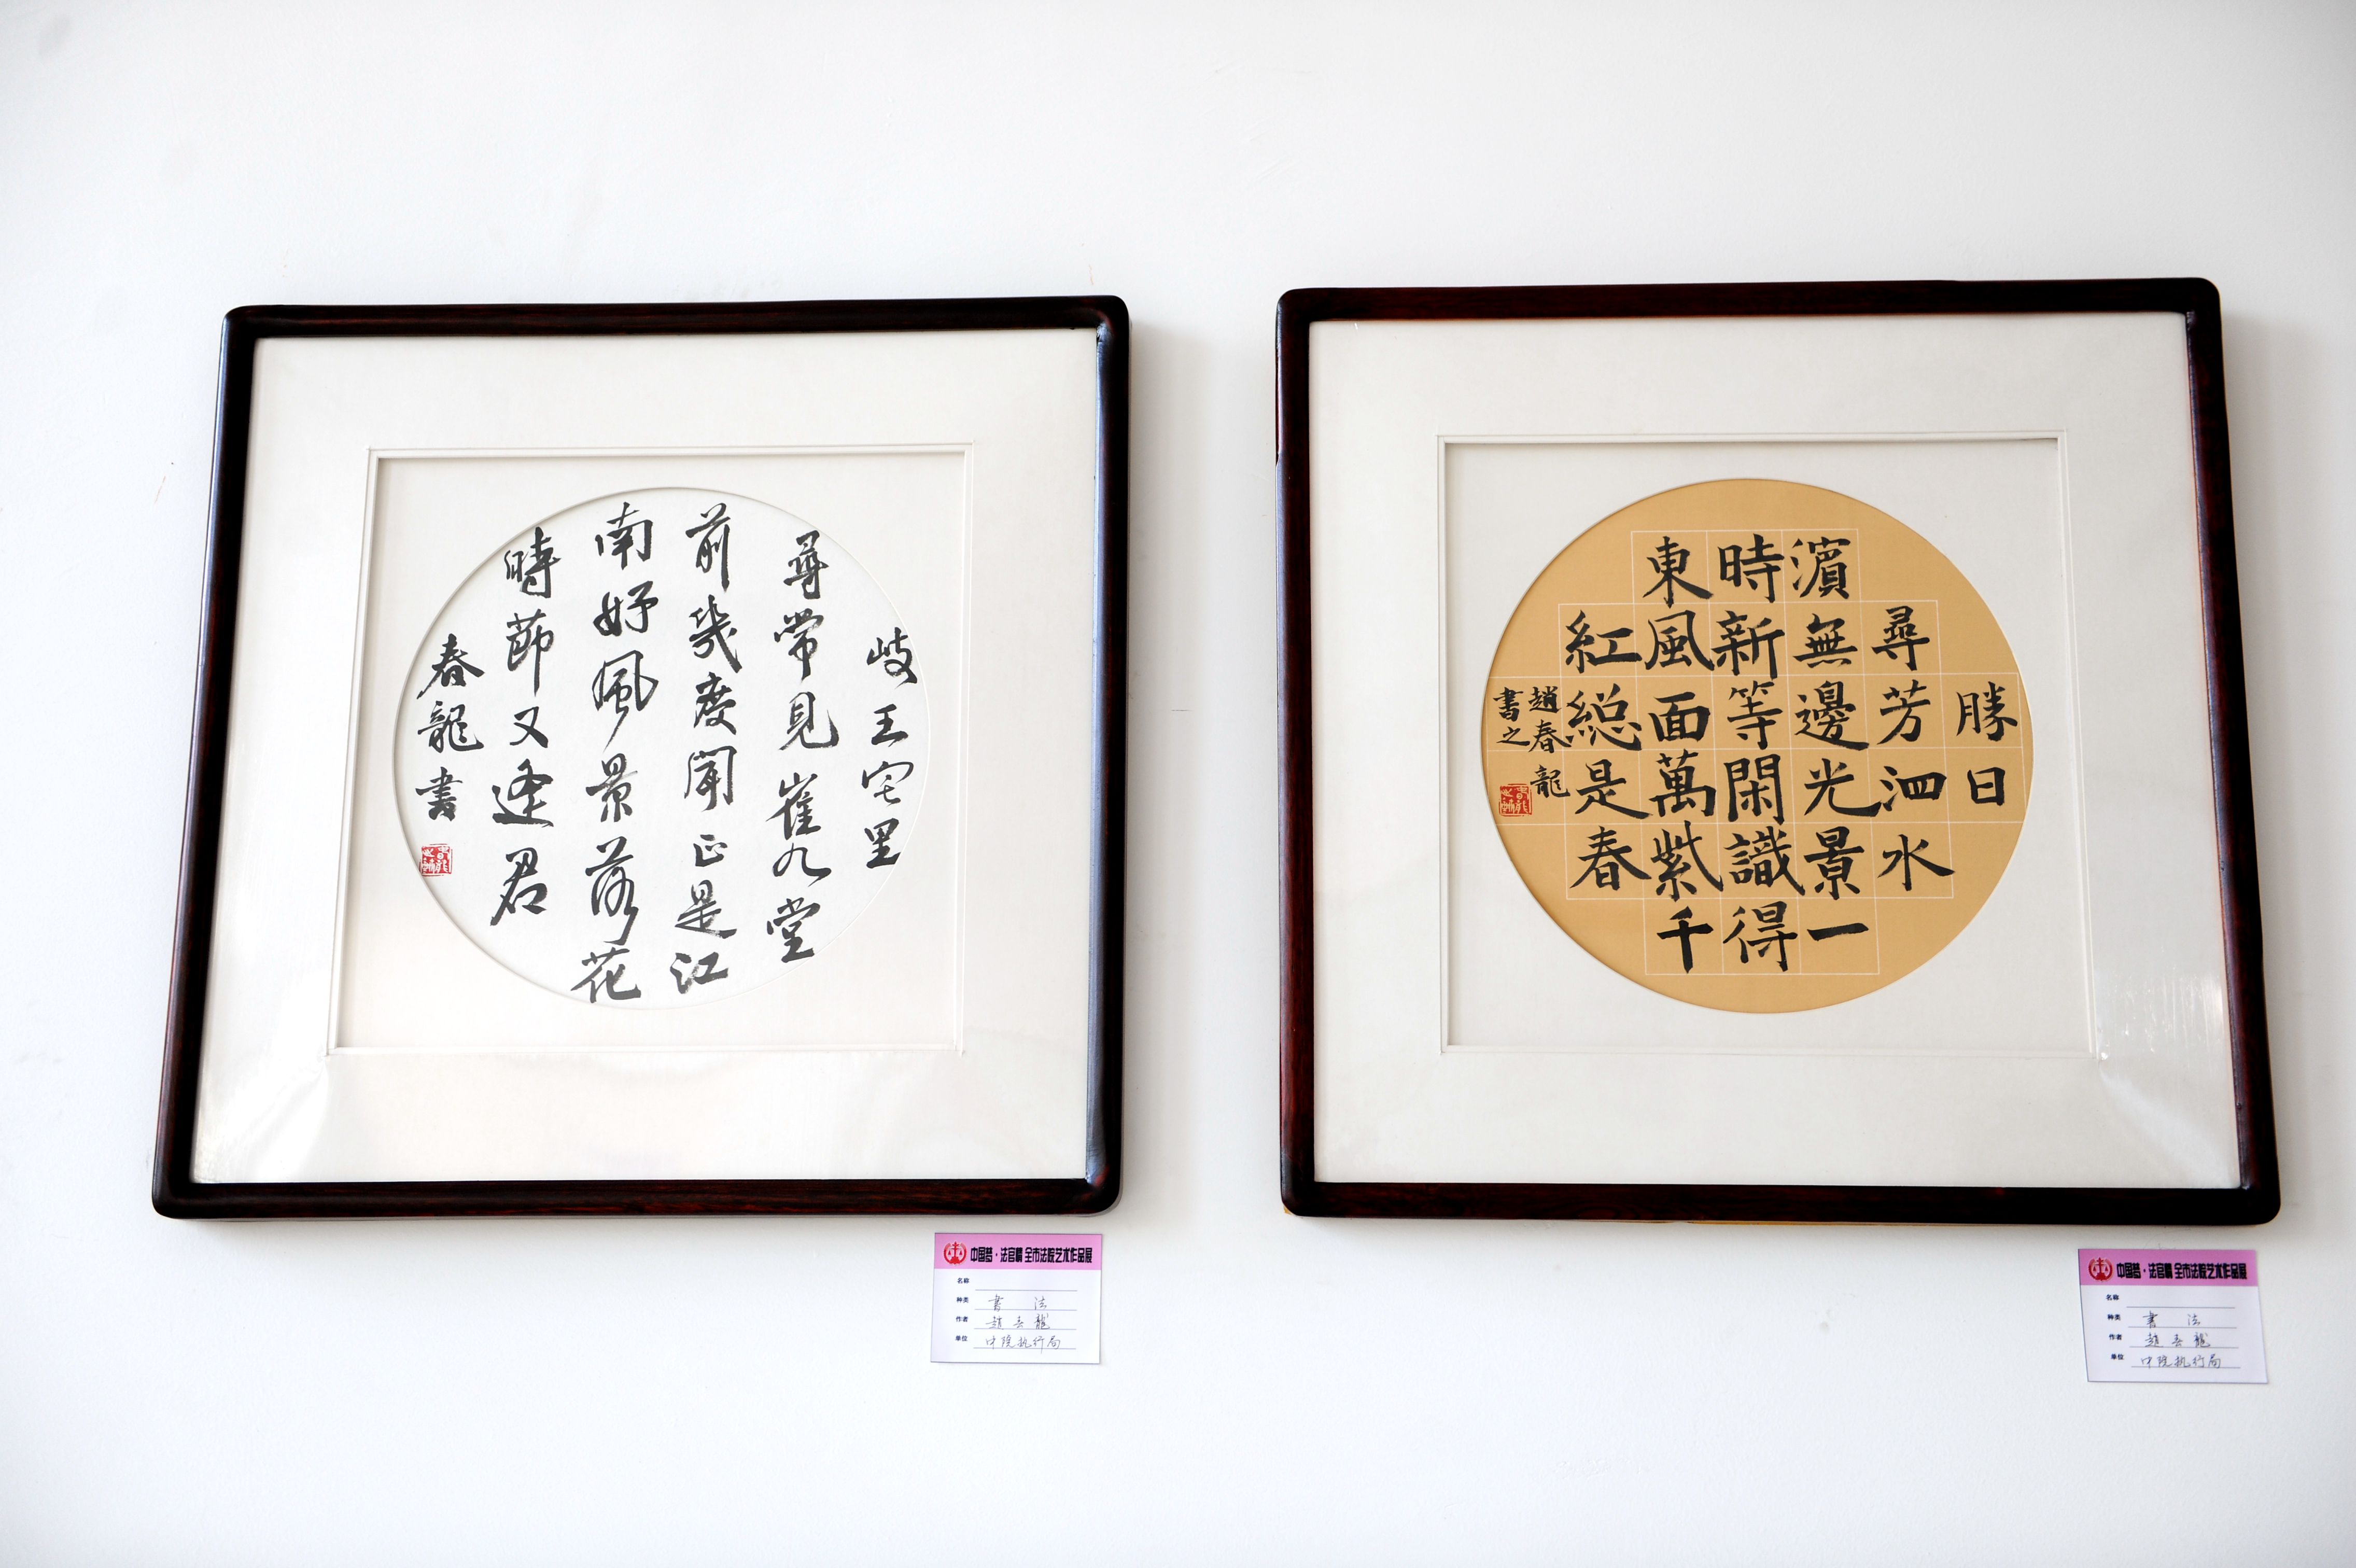 岐王宅里
尋常見崔九堂
前幾度聞正是江
南好風景落花
時節又逢君
春龍書
勝日
尋芳泗水
濱無邊光景一
時新等閑識得
東風面萬紫千
紅総是春
趙春龍
書之
中国梦·法官情 全市法院艺术作品展
名称
种类 書法
作者 趙春龍
单位 中院执行局
中国梦·法官情 全市法院艺术作品展
名称
种类 書法
作者 趙春龍
单位 中院执行局